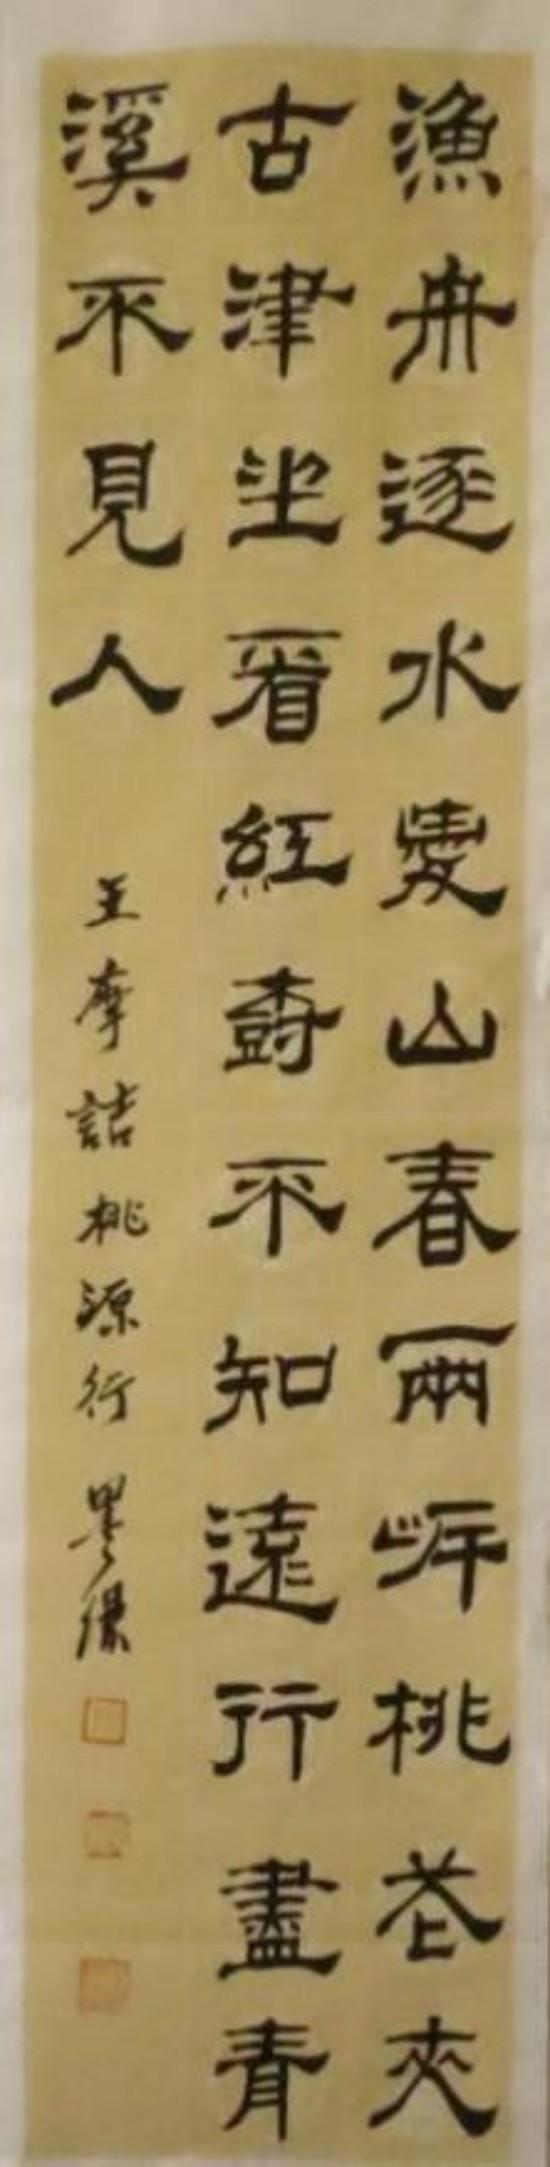 漁舟逐水愛山春兩岍桃花夾
古津坐看紅樹不知遠行盡青
溪不見人
王摩詰桃源行